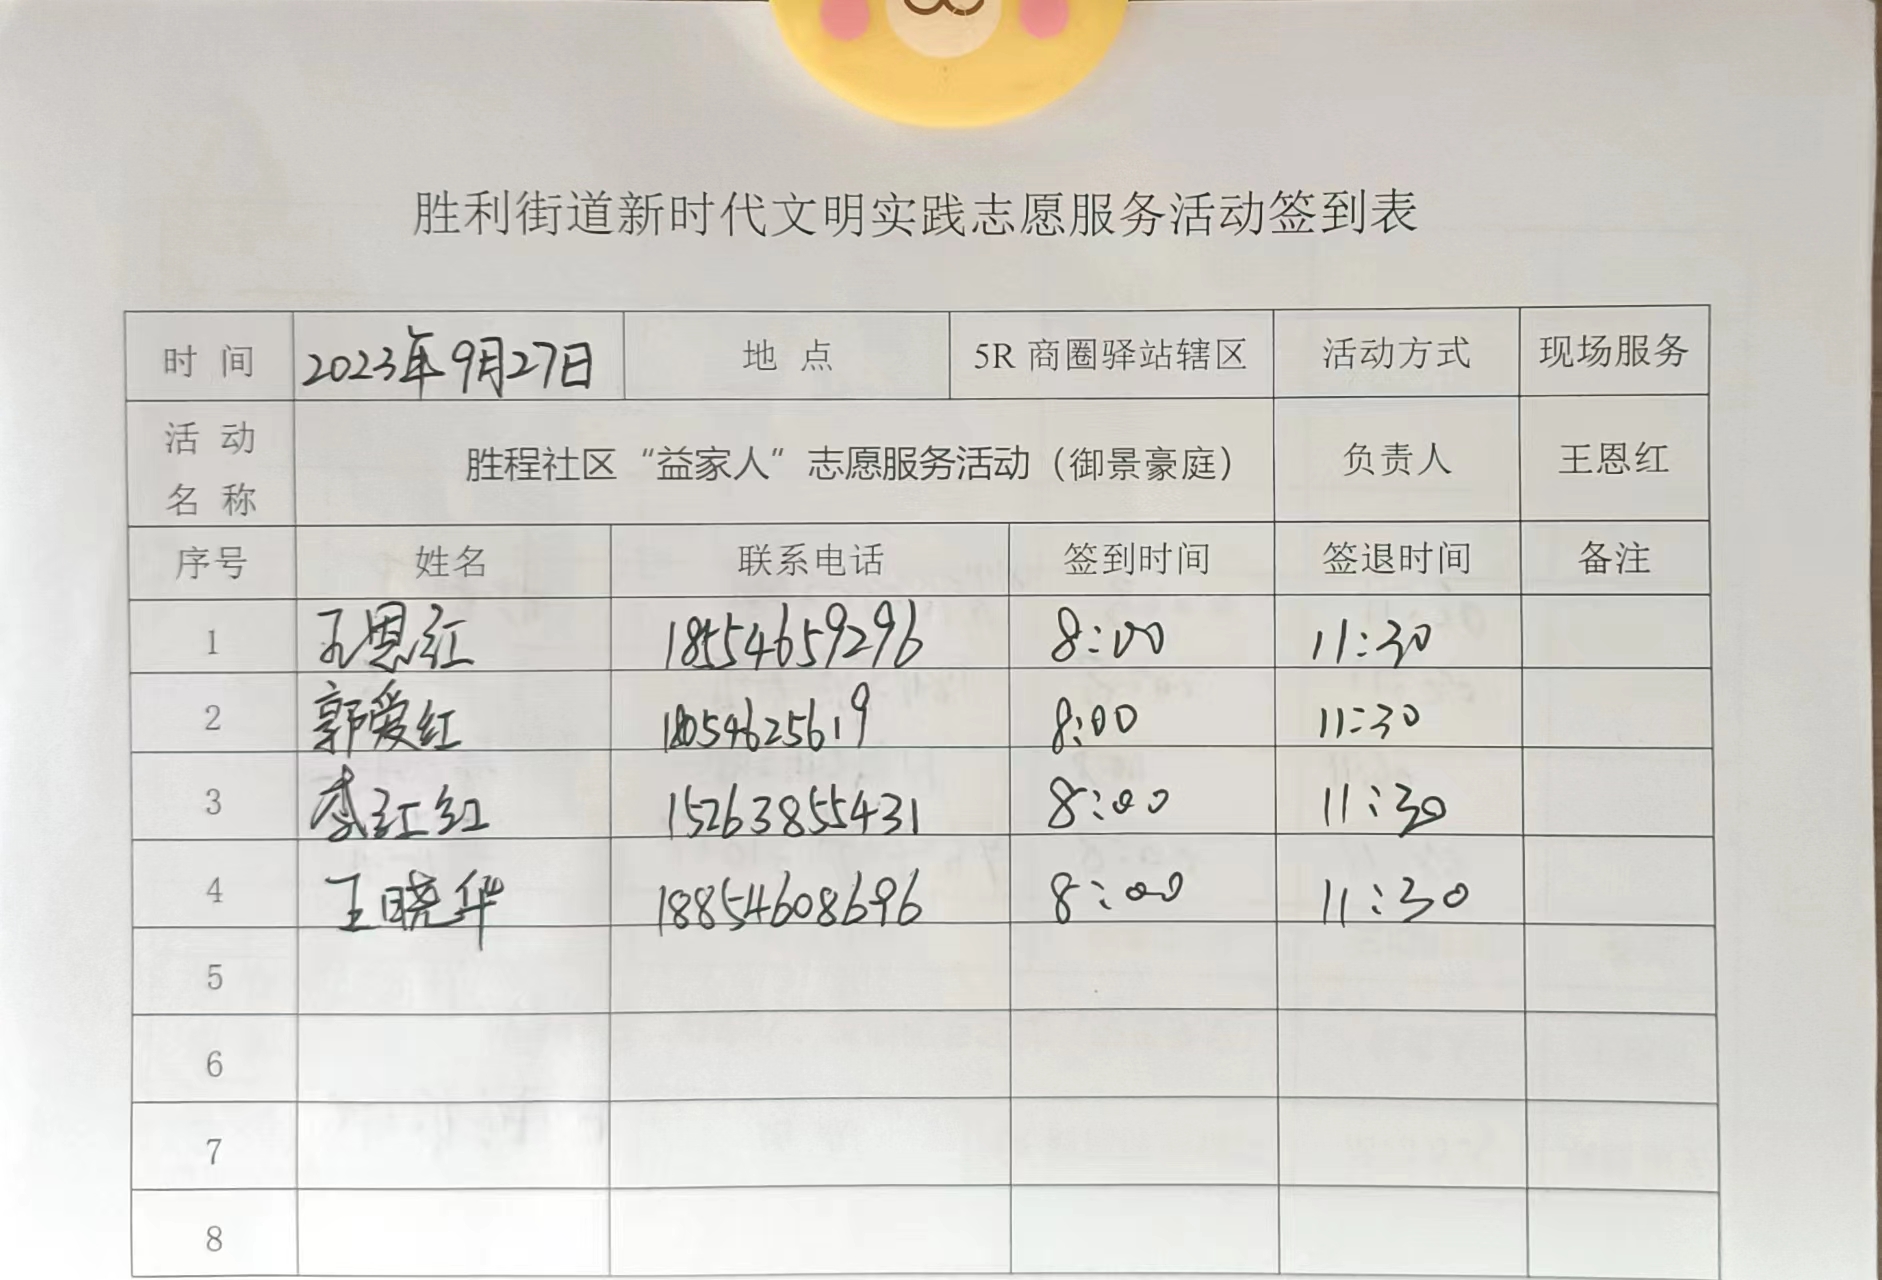 胜利街道新时代文明实践志愿服务活动签到表
时 间 2023年9月27日 地 点 5R 商圈驿站辖区 活动方式 现场服务
活 动 名 称 胜程社区“益家人”志愿服务活动（御景豪庭） 负责人 王恩红
序号 姓名 联系电话 签到时间 签退时间 备注
1 王恩红 18554659296 8:00 11:30
2 郭爱红 18054625619 8:00 11:30
3 李红红 15263855431 8:00 11:30
4 王晓华 18854608696 8:00 11:30
5
6
7
8